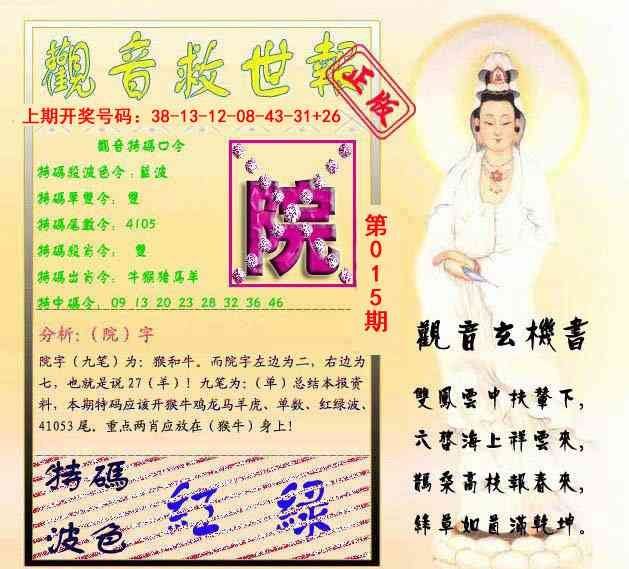 觀音救世報
正版
上期开奖号码：38-13-12-08-43-31+26
觀音特碼口令
特碼殺波色令：藍波
特碼單雙令： 雙
特碼尾數令：4105
特碼殺肖令： 雙
特碼出肖令：牛猴猪馬羊
特中碼令：09 13 20 23 28 32 36 46
院
第015期
分析：（院）字
院字（九笔）为：猴和牛。而院字左边为二，右边为
七，也就是说27（羊）！九笔为：（单）总结本报资
料，本期特码应该开猴牛鸡龙马羊虎、单数、红绿波、
41053尾。重点两肖应放在（猴牛）身上！
特碼
波色
紅 綠
觀音玄機書
雙鳳雲中扶輦下，
六 海上祥雲來，
鵲桑高枝報春來，
綠草如茵滿乾坤。